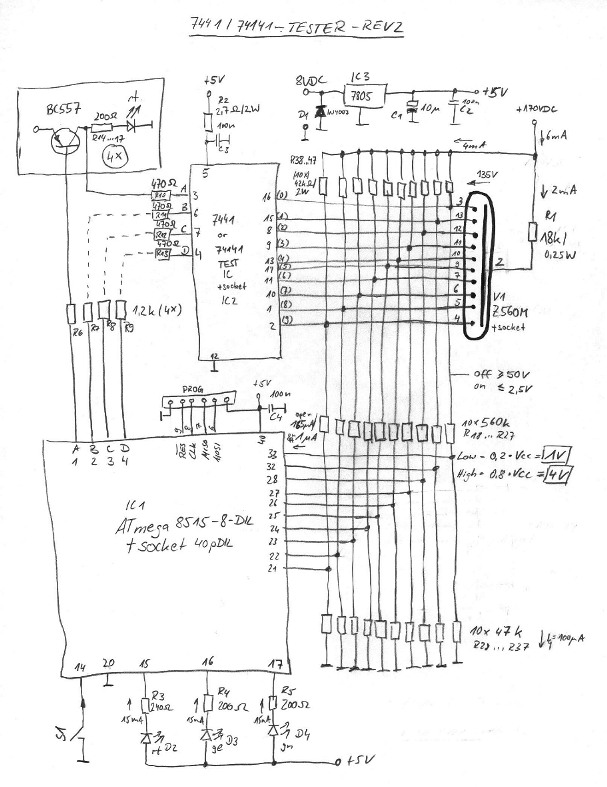 7441 / 74141 - TESTER - REV2
BC557
200Ω
R14...17
4x
+5V
R2
2,7Ω/2W
100n
C3
8VDC
IC3
7805
+5V
D1
1N4002
C1
10µ
100n
C2
+170VDC
6mA
4mA
R38..47
2W
135V
2mA
R1
18k/
0,25W
2
V1
Z560M
+socket
5
470Ω A 3
R10
470Ω B 6
R11
470Ω C 7
R12
470Ω D 4
R13
7441
or
74141
TEST
IC
+socket
IC2
12
16 (0) 3
15 (1) 13
8 (2) 12
9 (3) 11
13 (4) 10
(5) 9
11 (6) 7
10 (7) 6
1 (8) 5
2 (9) 4
R6 R7 R8 R9
1,2k (4x)
off ≥ 50V
on ≤ 2,5V
PROG
RES
CLK
MISO
MOSI
+5V
100n
C4
40
1µA
10x560k
R18...R27
Low - 0,2 * Vcc = 1V
High - 0,8 * Vcc = 4V
A B C D
1 2 3 4
33
32
28
27
26
25
24
23
22
21
IC1
ATmega 8515-8-DIL
+socket 40pDIL
10x47k
R28...R37
I=100µA
14 20 15 16 17
S1
R3
240Ω
15mA
rt D2
R4
200Ω
15mA
ge D3
R5
200Ω
15mA
gn D4
+5V